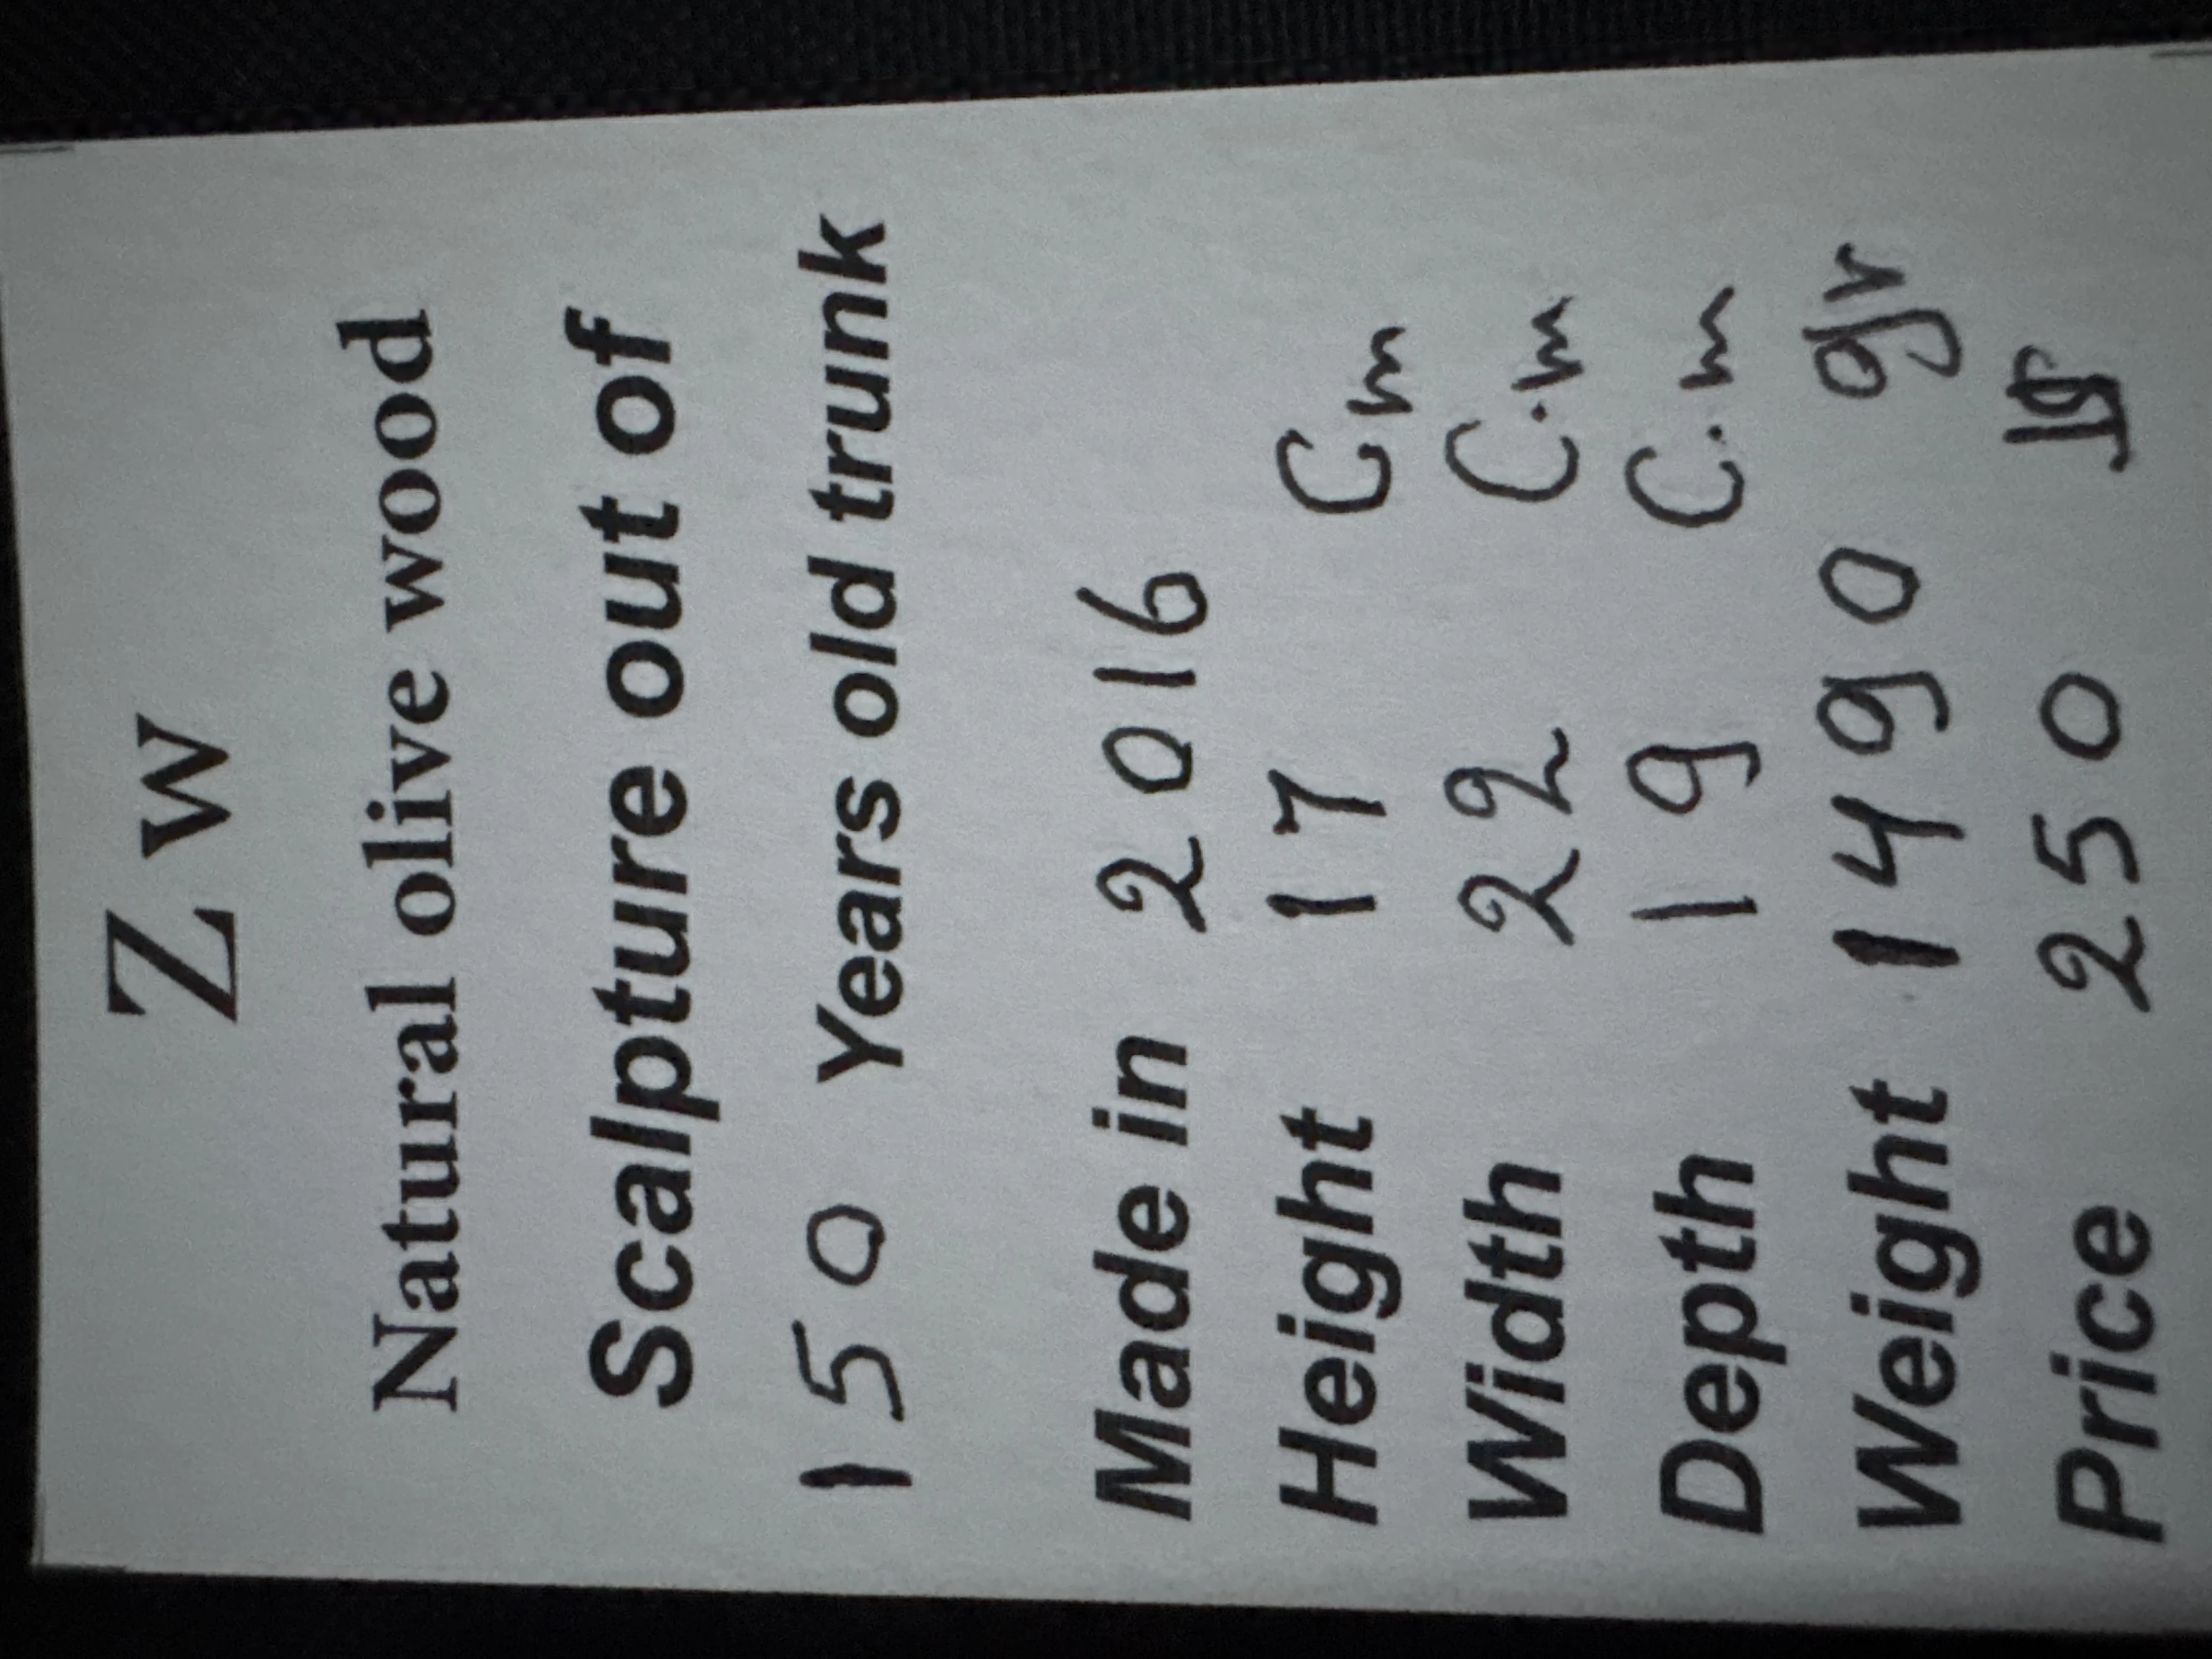 Z w
Natural olive wood
Scalpture out of
150 Years old trunk
Made in 2016
Height 17 Cm
Width 22 C.m
Depth 19 C.m
Weight 1490 gr
Price 250